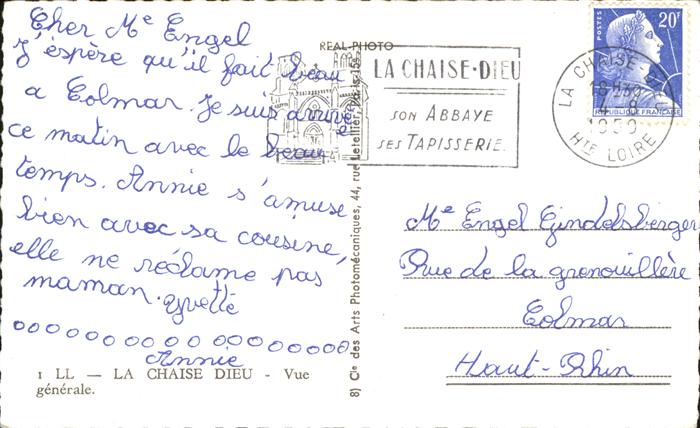 Cher Me Engel
J'espère qu'il fait beau
a Colmar. Je suis arrivée
ce matin avec le beau
temps. Annie s'amuse
bien avec sa cousine,
elle ne réclame pas
maman. Yvette
ooooooooo oooooooo
Annie
1 LL — LA CHAISE DIEU - Vue
générale.
REAL-PHOTO
8) Cie des Arts Photomécaniques, 44, rue Letellier, Paris-15e
LA CHAISE-DIEU
SON ABBAYE
SES TAPISSERIES
LA CHAISE DIEU
18H30
4-8
1959
HTE LOIRE
POSTES
20F
REPUBLIQUE FRANÇAISE
Me Engel Gindelsberger
Rue de la grenouillère
Colmar
Haut-Rhin